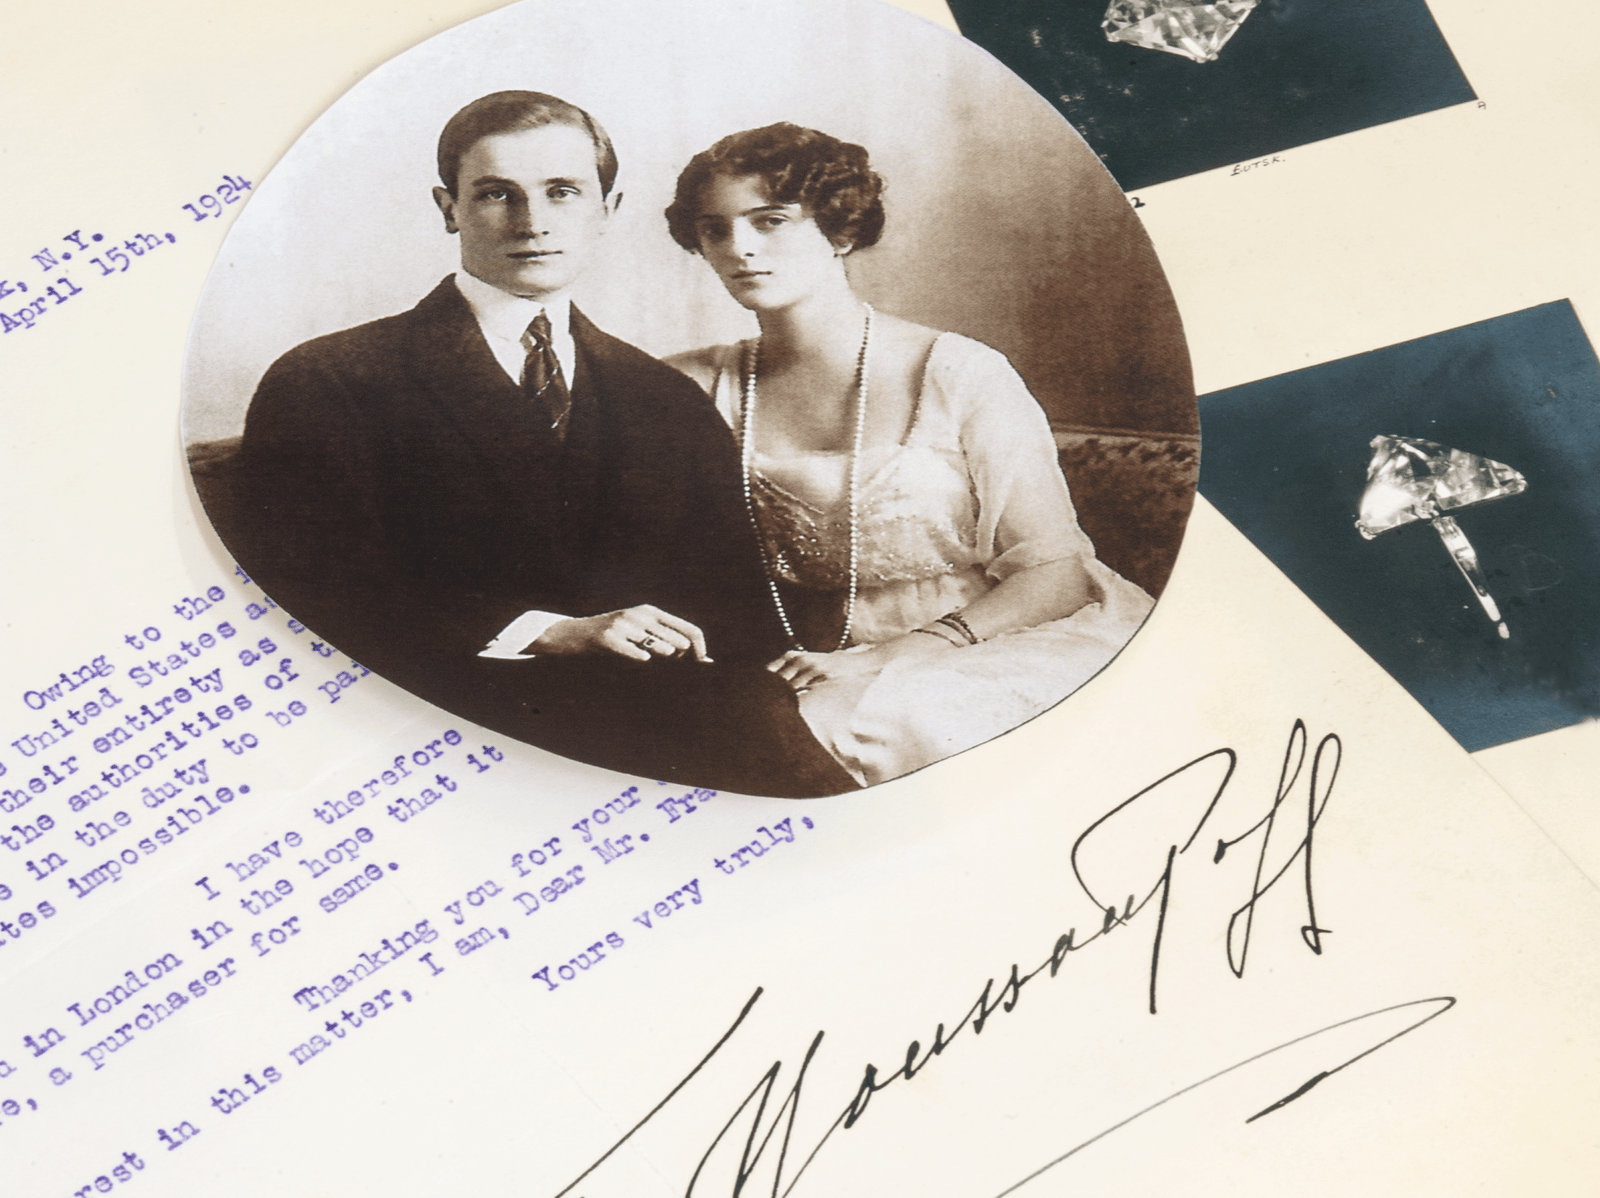 k, N.Y.
April 15th, 1924
Owing to the
United States as
their entirety as
the authorities of
in the duty to be pai
tes impossible.
I have therefore
in London in the hope that it
a purchaser for same.
Thanking you for your
rest in this matter, I am, Dear Mr. Fra
Yours very truly,
F Youssoupoff
2
A